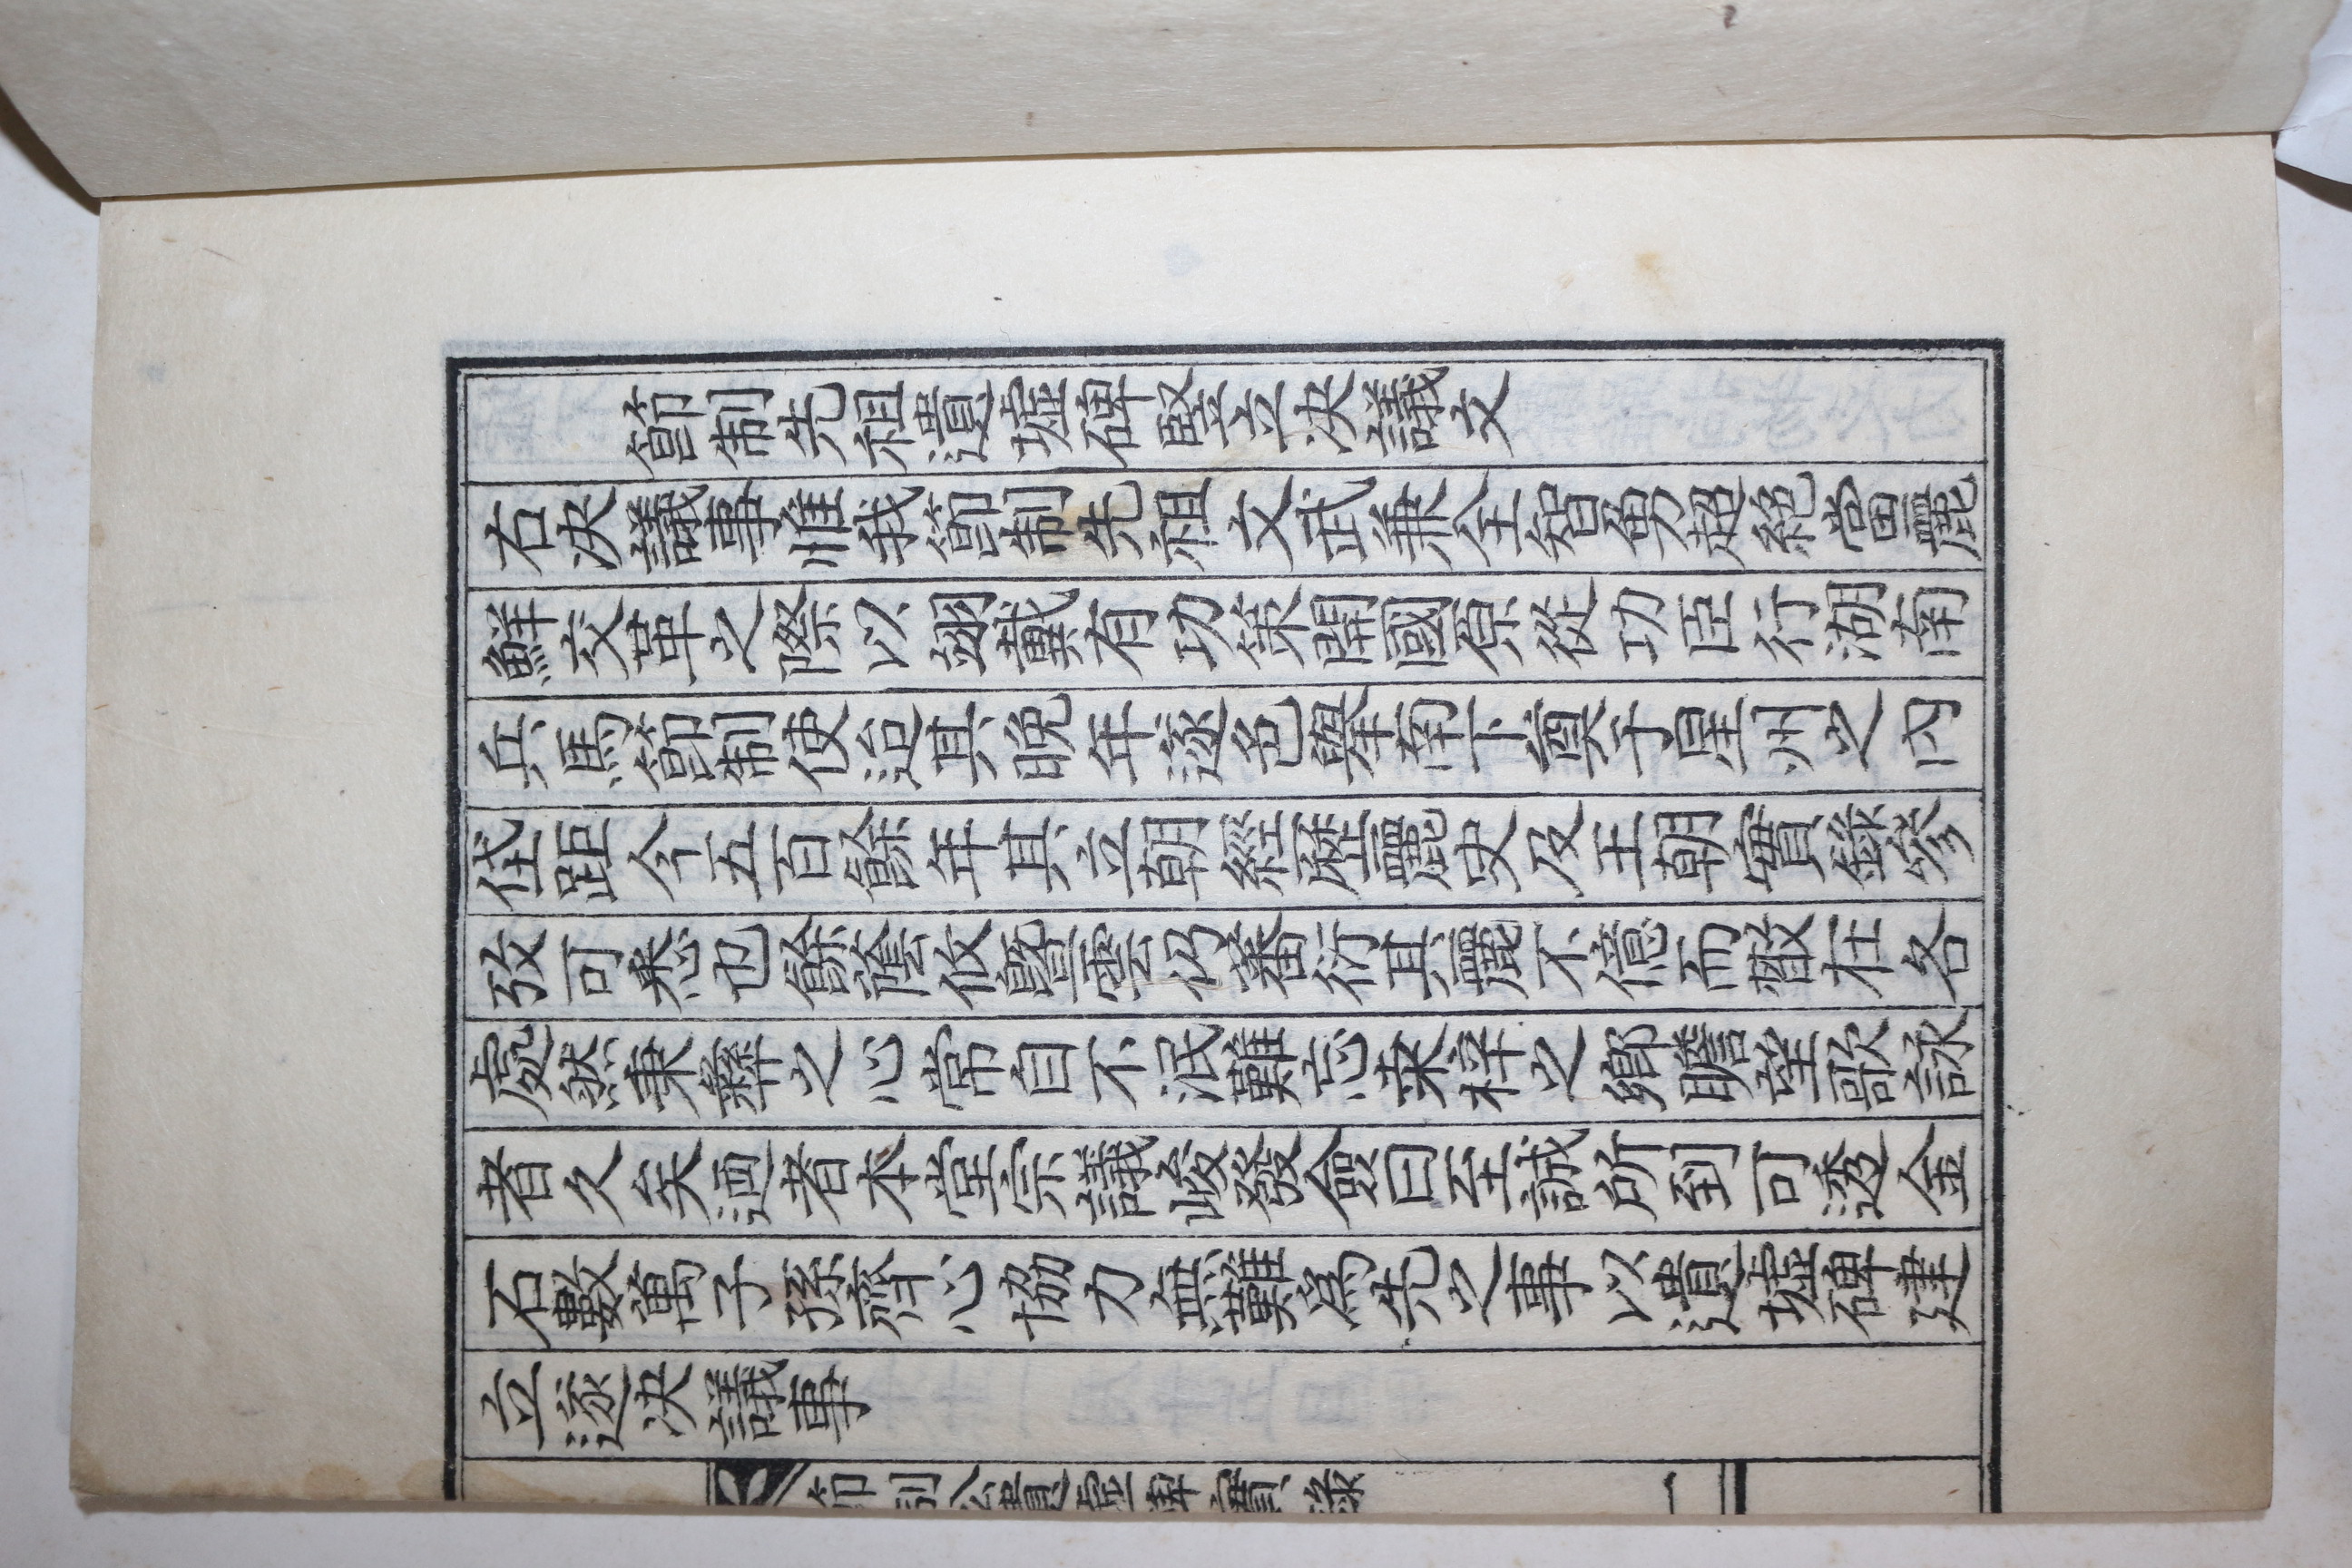 節制先祖遺墟碑竪立决議文
右决議事惟我節制先祖文武兼全智勇超絶當麗
鮮交革之際以翊戴有功策開國原從功臣行湖南
兵馬節制使迨其晩年遂色擧南下奠于星州之內
垡距今五百餘年其立朝經歷麗史及王朝實錄參
攷可悉也餘蔭攸曁雲仍蕃衍其麗不億而散在各
處然秉彝之心常自不泯難忘桒梓之鄕瞻望歌詠
者久矣迺者本堂宗議峻發僉曰至誠所到可透金
石數萬子孫齊心協力無難爲先之事以遺墟碑建
立遂决議事
節制公遺墟碑實錄
一